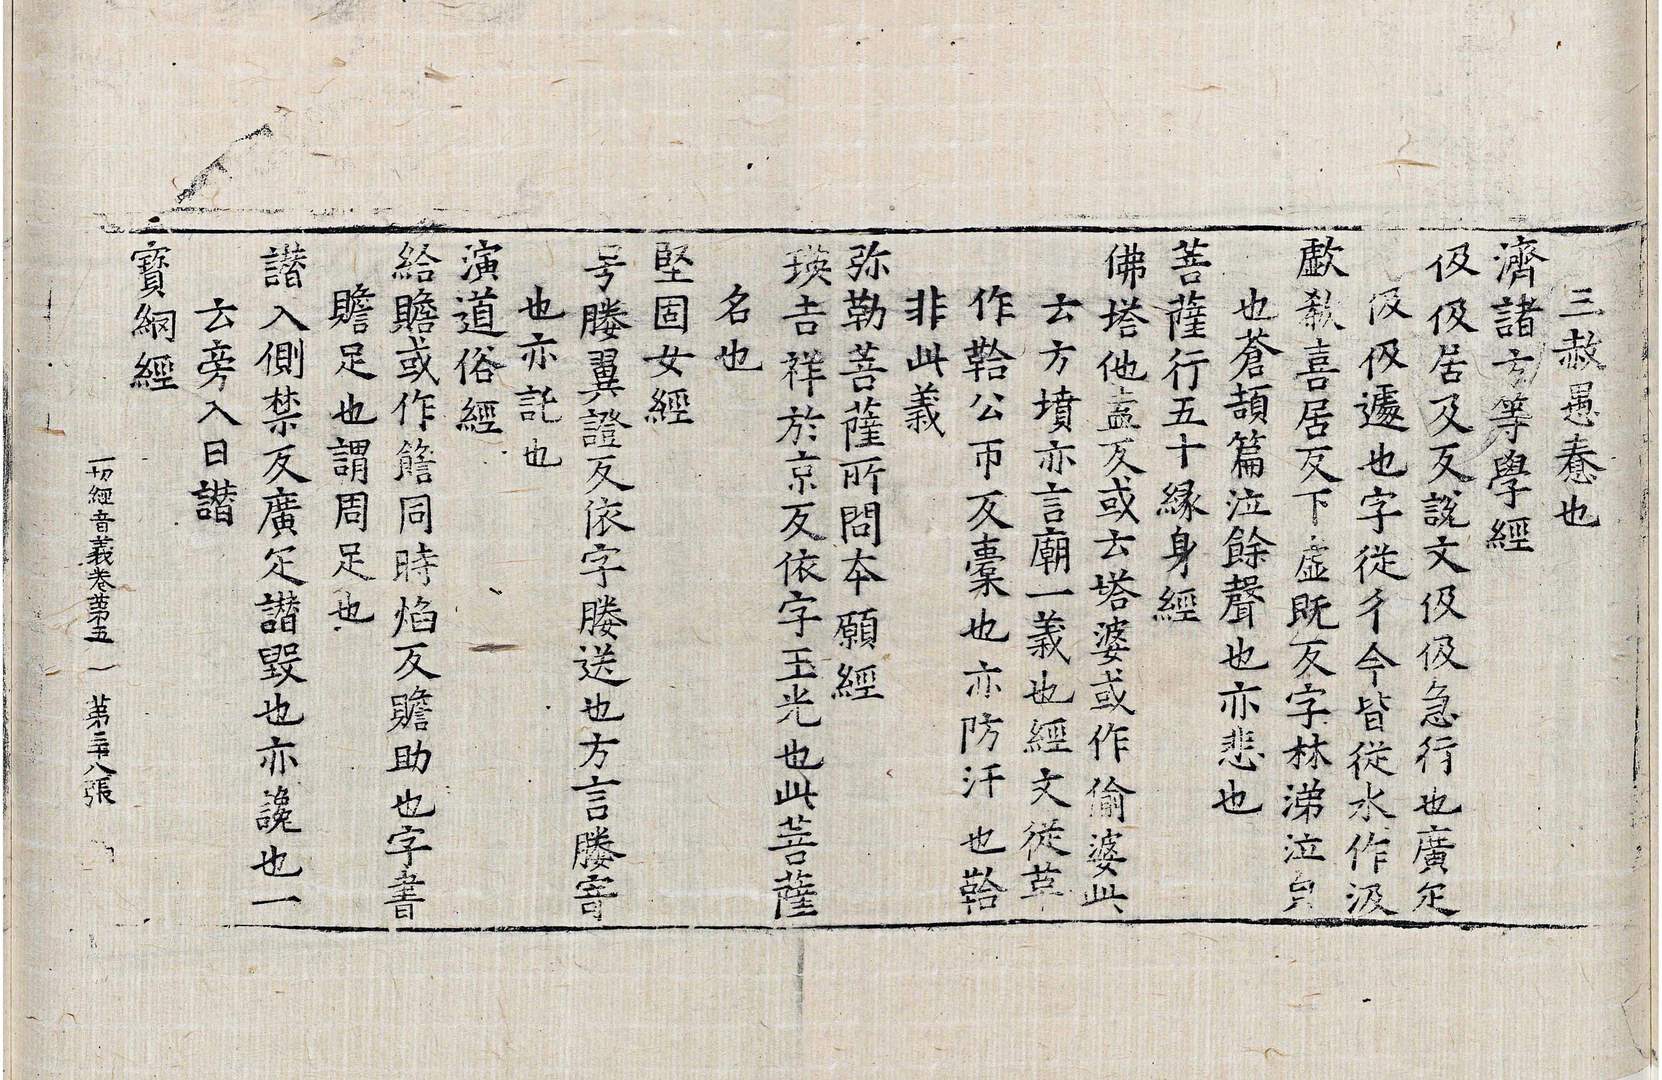 三赦愚惷也
濟諸方等學經
伋伋居及反說文伋伋急行也廣疋
伋伋遽也字從彳今皆從水作汲
歔欷喜居反下虛既反字林涕泣皃
也蒼頡篇泣餘聲也亦悲也
菩薩行五十緣身經
佛塔他盍反或云塔婆或作偷婆此
云方墳亦言廟一義也經文從革
作鞈公帀反橐也亦防汗也鞈
非此義
弥勒菩薩所問本願經
瑛吉祥於京反依字玉光也此菩薩
名也
堅固女經
号媵翼證反依字媵送也方言媵寄
也亦託也
演道俗經
給贍或作饍同時焰反贍助也字書
贍足也謂周足也
譖入側禁反廣疋譖毀也亦讒也一
云旁入曰譖
寶網經
一切經音義卷苐五 一 苐三十八張